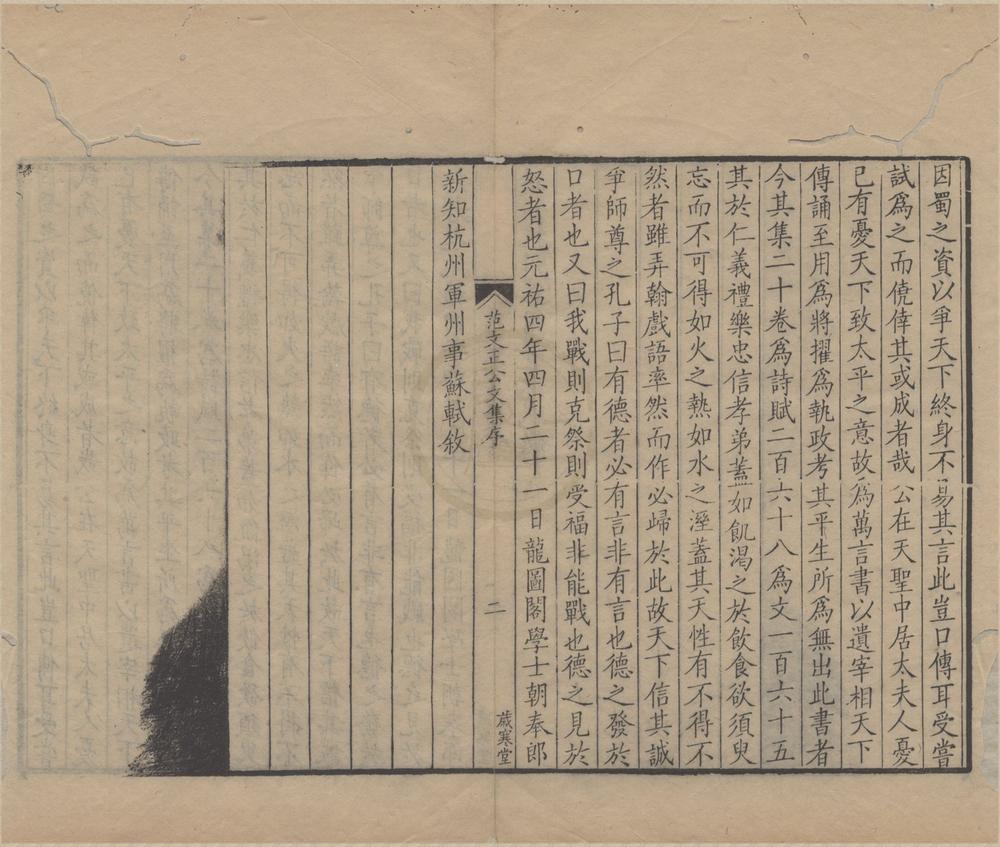 因蜀之資以爭天下終身不易其言此豈口傳耳受嘗
試爲之而僥倖其或成者哉公在天聖中居太夫人憂
已有憂天下致太平之意故爲萬言書以遺宰相天下
傳誦至用爲將擢爲執政考其平生所爲無出此書者
今其集二十卷爲詩賦二百六十八爲文一百六十五
其於仁義禮樂忠信孝弟蓋如飢渴之於飲食欲須臾
忘而不可得如火之熱如水之溼蓋其天性有不得不
然者雖弄翰戲語率然而作必歸於此故天下信其誠
爭師尊之孔子曰有德者必有言非有言也德之發於
口者也又曰我戰則克祭則受福非能戰也德之見於
怒者也元祐四年四月二十一日龍圖閣學士朝奉郎
范文正公文集序
二
歲寒堂
新知杭州軍州事蘇軾敘